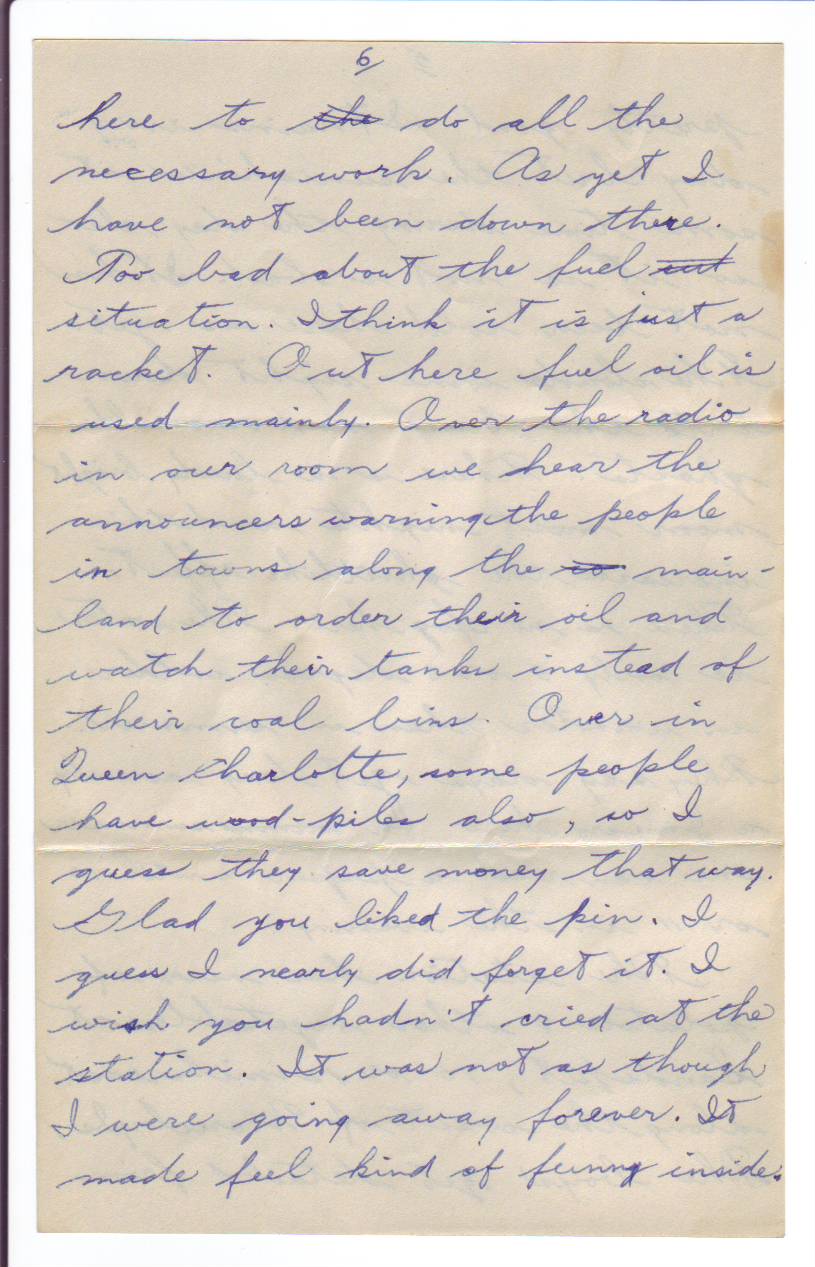 6
here to the do all the
necessary work. As yet I
have not been down there.
Too bad about the fuel sit
situation. I think it is just a
racket. Out here fuel oil is
used mainly. Over the radio
in our room we hear the
announcers warning the people
in towns along the co main-
land to order their oil and
watch their tanks instead of
their coal bins. Over in
Queen Charlotte, some people
have wood-piles also, so I
guess they save money that way.
Glad you liked the pin. I
guess I nearly did forget it. I
wish you hadn't cried at the
station. It was not as though
I were going away forever. It
made feel kind of funny inside.